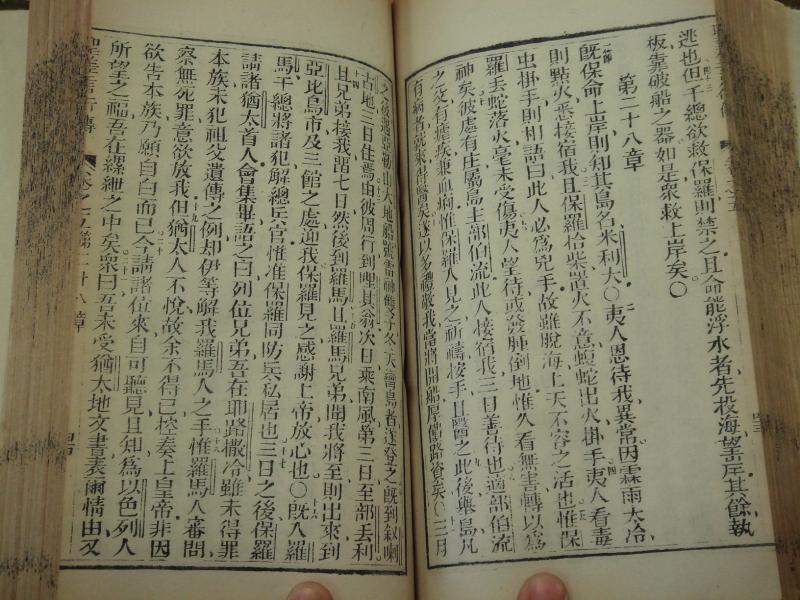 逃也但千總欲救保羅則禁之且命能浮水者先投海望岸其餘執
板靠破船之器如是衆救上岸矣〇
第二十八章
一節 既保命上岸則知其島名米利大〇夷人恩待我異常因霖雨大冷
則點火悉接宿我且保羅拾柴置火不意螝蛇出火掛手夷人看毒
虫掛手則相語曰此人必爲兇手故雖脫海上天不容之活也惟保
羅丟蛇落火毫未受傷夷人望待或發腫倒地惟久看無害轉以爲
神矣彼處有庄屬島主部伯流此人接宿我三日善待也適部伯流
之父有瘧疾兼血痢惟保羅入見之祈禱按手且醫之此後舉島凡
有病者就來得醫矣遂以多禮敬我當將開船厚備路資矣〇三月
之後遇亞勒山大地船號雷神雙子冬天避島者遂登之既到叙喇
古地三日住焉由彼周行到哩其翁次日乘南風第三日至部丟利
且兄弟接我畱七日然後到羅馬且羅馬兄弟聞我將至則出來到
亞比烏市及三館之處迎我保羅見之感謝上帝放心也〇既入羅
馬千總將諸犯解總兵官惟准保羅同防兵私居也三日之後保羅
請諸猶太首人會集畢語之曰列位兄弟吾在耶路撒冷雖未得罪
本族未犯祖父遺傳之例却伊等解我羅馬人之手惟羅馬人審問
察無死罪意欲放我但猶太人不悅故余不得已控奏上皇帝非因
欲告本族乃願自白而已今請諸位來自可聽見且知爲以色列人
所望之福吾在縲絏之中矣衆曰吾未受猶太地文書表爾情由又